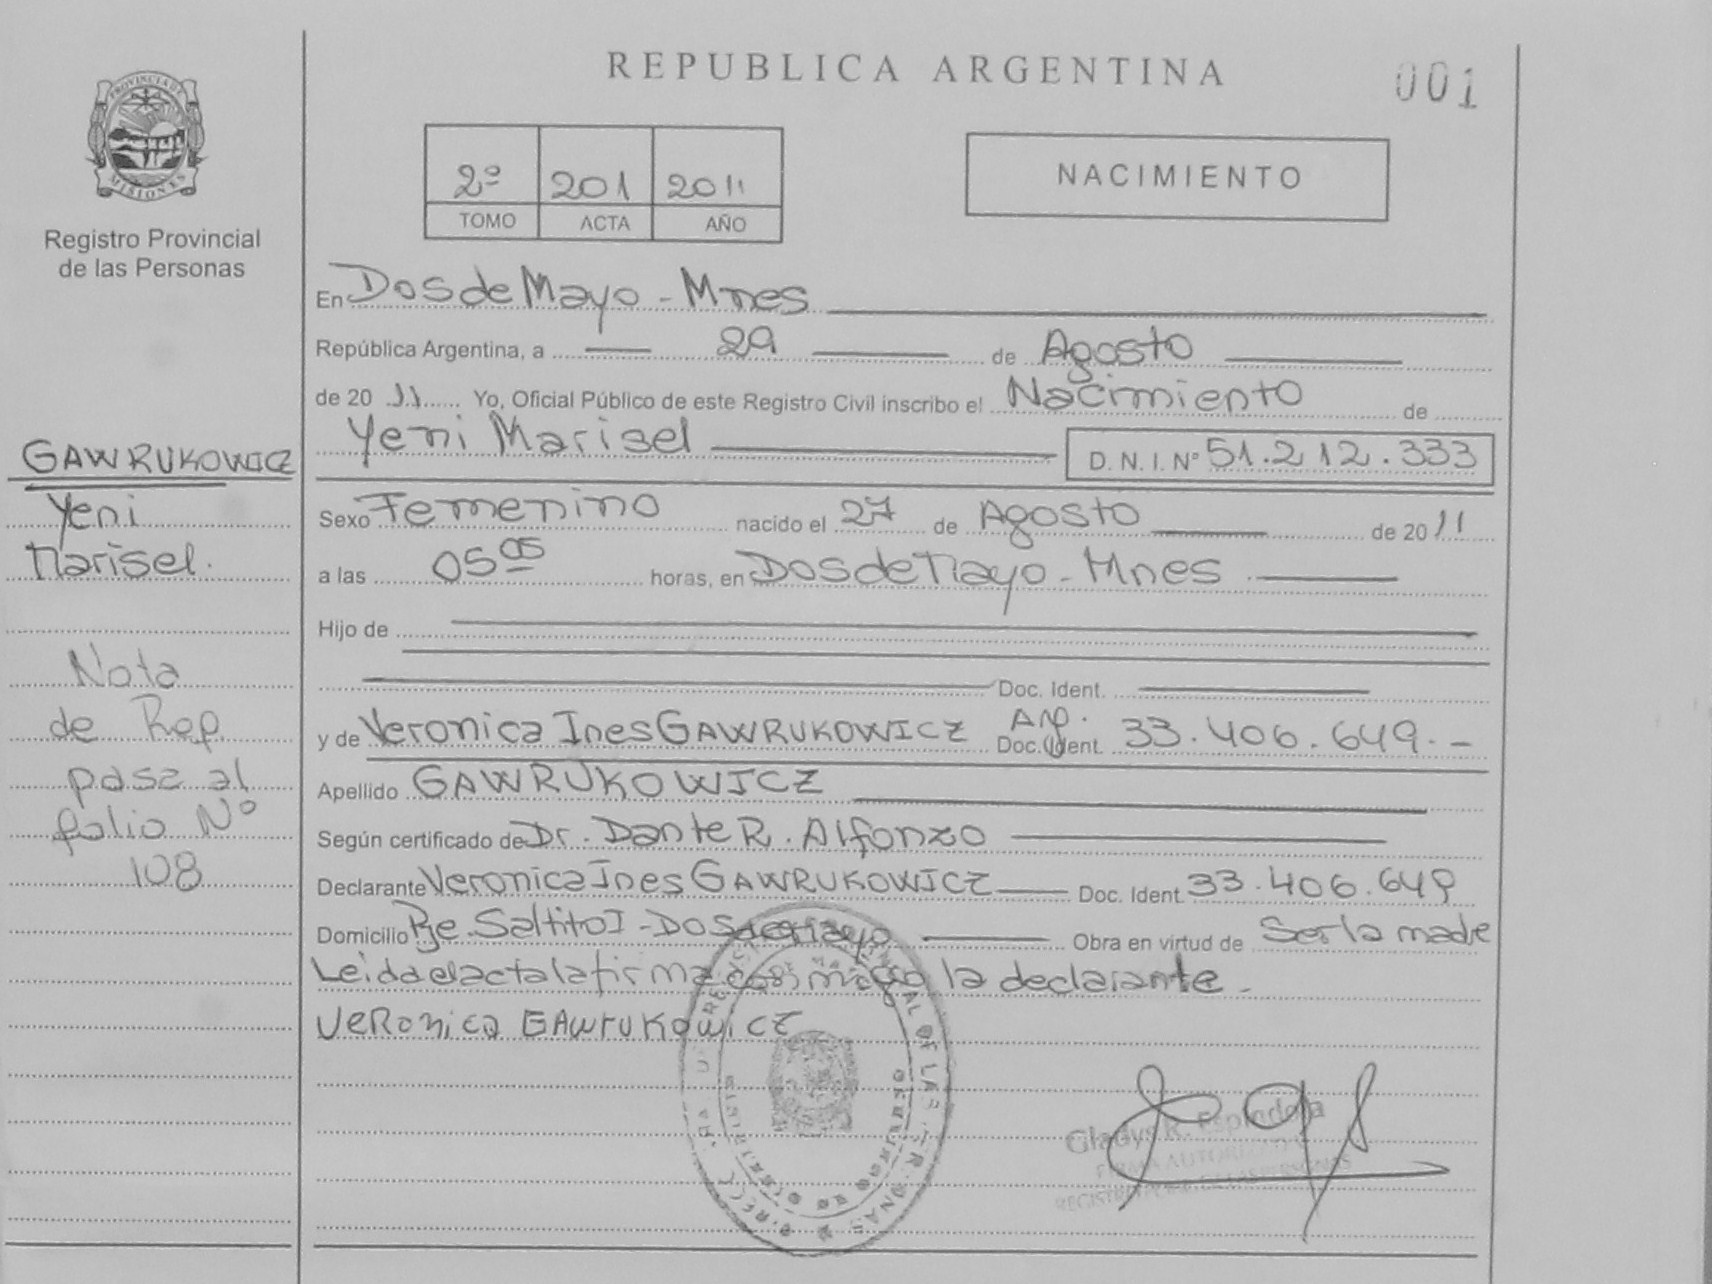 PROVINCIA DE
MISIONES
Registro Provincial
de las Personas
GAWRUKOWICZ
Yeni
Marisel.
Nota
de Rep.
pasa al
folio Nº
108
REPUBLICA ARGENTINA
001
2º 201 2011
TOMO ACTA AÑO
NACIMIENTO
En Dos de Mayo - Mnes
República Argentina, a 29 de Agosto
de 20 11 Yo, Oficial Público de este Registro Civil inscribo el Nacimiento de
Yeni Marisel D. N. I. Nº 51.212.333
Sexo Femenino nacido el 27 de Agosto de 20 11
a las 05 05 horas, en Dos de Mayo - Mnes
Hijo de
Doc. Ident.
y de Veronica Ines GAWRUKOWICZ Arg. Doc. Ident. 33.406.649.-
Apellido GAWRUKOWICZ
Según certificado de Dr. Dante R. Alfonzo
Declarante Veronica Ines GAWRUKOWICZ Doc. Ident. 33.406.649
Domicilio Pje. Saltito I - Dos de Mayo Obra en virtud de Ser la madre
Leida el acta la firma conmigo la declarante.
VERonica GAWruKowicz
Gladys R. Espindola
FIRMA AUTORIZADA